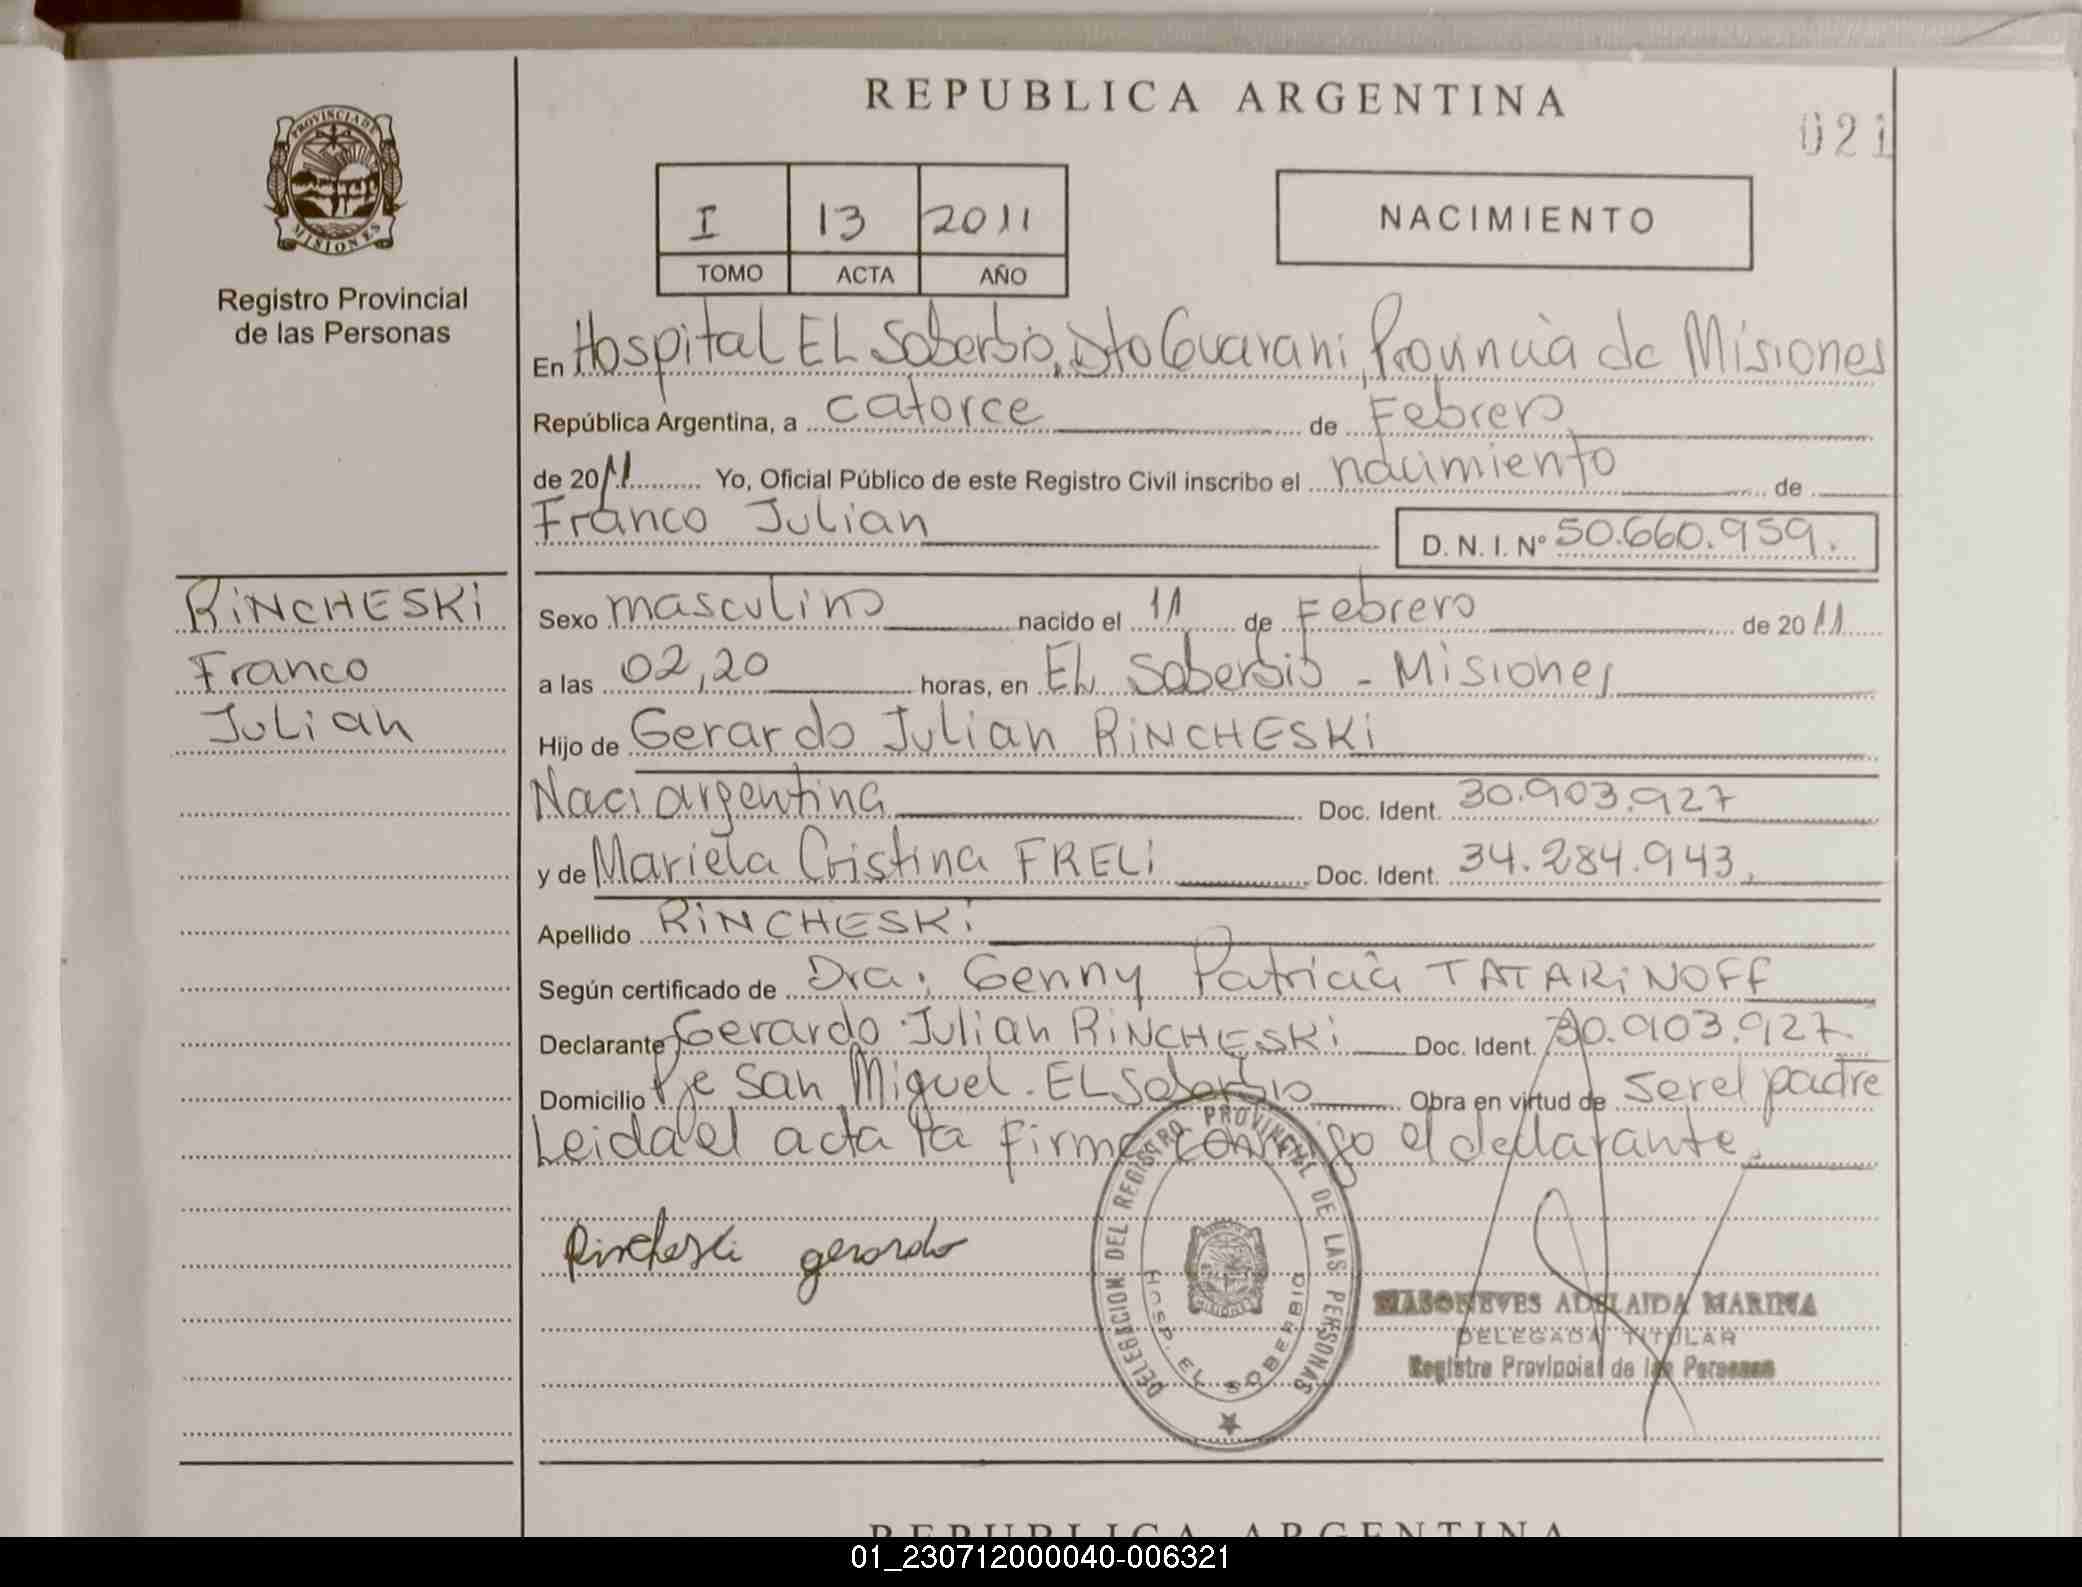 REPUBLICA ARGENTINA
021
PROVINCIA DE
MISIONES
Registro Provincial
de las Personas
I 13 2011
TOMO ACTA AÑO
NACIMIENTO
En Hospital EL Soberbio, Dto Guarani, Provincia de Misiones
República Argentina, a catorce de Febrero
de 2011 Yo, Oficial Público de este Registro Civil inscribo el nacimiento de
Franco Julian D. N. I. Nº 50.660.959.
RiNCHESKi
Franco
Julian
Sexo masculino nacido el 11 de Febrero de 2011
a las 02,20 horas, en EL Soberbio - Misiones
Hijo de Gerardo Julian RiNCHESKi
Naci argentina Doc. Ident. 30.903.927
y de Mariela Cristina FRELi Doc. Ident. 34.284.943
Apellido RiNCHESKi
Según certificado de Dra: Genny Patricia TATARiNOFF
Declarante Gerardo Julian RiNCHESKi Doc. Ident. 30.903.927
Domicilio Pje San Miguel. EL Soberbio Obra en virtud de ser el padre
Leida el acta la firma conmigo el declarante.
Rincheski gerardo
DELEGACION DEL REGISTRO PROVINCIAL DE LAS PERSONAS
HOSP. EL SOBERBIO
MASONEVES ADELAIDA MARINA
DELEGADA TITULAR
Registro Provincial de las Personas
REPUBLICA ARGENTINA
01_230712000040-006321